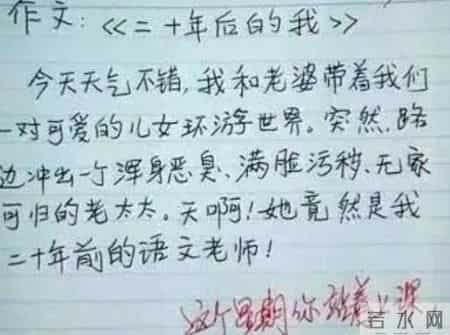 作文:《《二十年后的我》》
今天天气不错,我和老婆带着我们
一对可爱的儿女环游世界。突然,路
边冲出一个浑身恶臭、满脸污秽、无家
可归的老太太。天啊!她竟然是我
二十年前的语文老师!
这个星期你站着上课
若水网